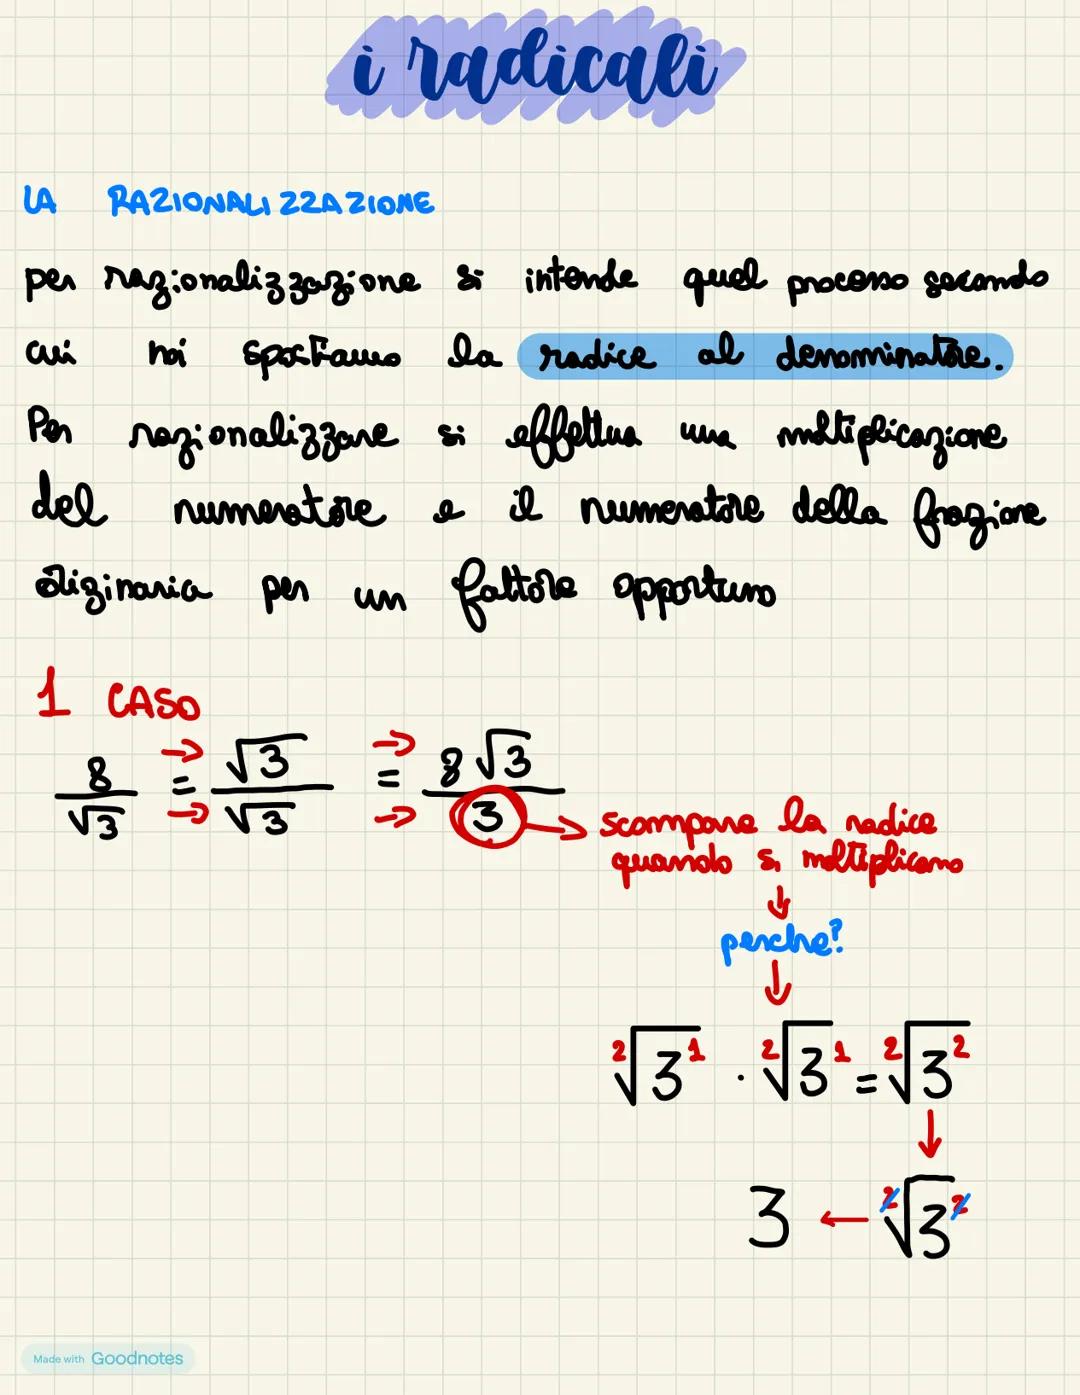 i radicali
LA RAZIONALIZZAZIONE
per razionalizzazione si intende quel processo secondo
cui noi spostiamo la radice al denominatore.
Per razionalizzare si effettua una moltiplicazione
del numeratore e il numeratore della frazione
originaria per un fattore opportuno
1 CASO
8/√3 = √3/√3 = 8√3/3
→ → → →
→ scompare la radice
quando si moltiplicano
↓
perche?
↓
²√3¹ · ²√3¹ = ²√3²
↓
3 ← ²√3²
Made with Goodnotes